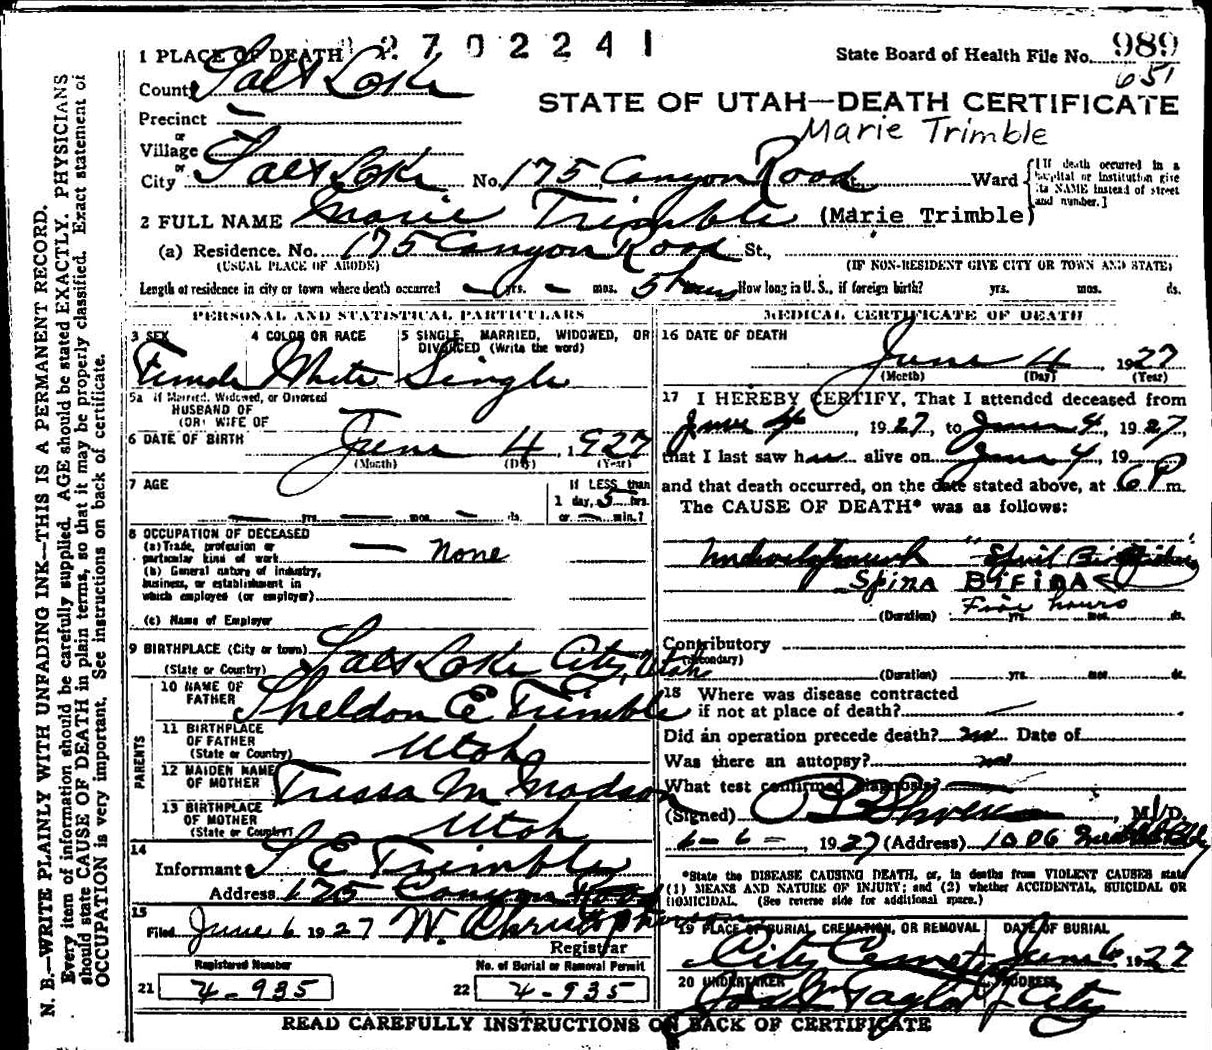 1 PLACE OF DEATH 2702241
State Board of Health File No. 989
651
County Salt Lake
STATE OF UTAH—DEATH CERTIFICATE
Precinct —
Marie Trimble
or
Village
or
City Salt Lake No. 175 Canyon Road Ward
[If death occurred in a hospital or institution give its NAME instead of street and number.]
2 FULL NAME Marie Trimble (Marie Trimble)
(a) Residence. No. 175 Canyon Road St.,
(USUAL PLACE OF ABODE) (IF NON-RESIDENT GIVE CITY OR TOWN AND STATE)
Length of residence in city or town where death occurred — yrs. — mos. 5 hours How long in U. S., if foreign birth? yrs. mos. ds.
PERSONAL AND STATISTICAL PARTICULARS
3 SEX
Female
4 COLOR OR RACE
White
5 SINGLE, MARRIED, WIDOWED, OR DIVORCED (Write the word)
Single
5a If Married, Widowed, or Divorced
HUSBAND OF
(OR) WIFE OF
6 DATE OF BIRTH June 4, 1927
(Month) (Day) (Year)
7 AGE
— yrs. — mos. — ds.
If LESS than
1 day, 5 hrs.
or — min.?
8 OCCUPATION OF DECEASED
(a) Trade, profession or
particular kind of work — none
(b) General nature of industry,
business, or establishment in
which employed (or employer)
(c) Name of Employer
9 BIRTHPLACE (City or town) Salt Lake City, Utah
(State or Country)
PARENTS
10 NAME OF
FATHER Sheldon E Trimble
11 BIRTHPLACE
OF FATHER
(State or Country) Utah
12 MAIDEN NAME
OF MOTHER Tressa M Madson
13 BIRTHPLACE
OF MOTHER
(State or Country) Utah
14
Informant S E Trimble
Address 175 Canyon Road
15
Filed June 6 1927 W. Christopherson
Registrar
Registered Number
21 4-935
No. of Burial or Removal Permit
22 4-935
MEDICAL CERTIFICATE OF DEATH
16 DATE OF DEATH
June 4 1927
(Month) (Day) (Year)
17 I HEREBY CERTIFY, That I attended deceased from
June 4, 1927, to June 4, 1927,
that I last saw her alive on June 4, 19
and that death occurred, on the date stated above, at 6 P m.
The CAUSE OF DEATH* was as follows:
Spina BIFIDA
Five hours
(Duration) yrs. mos. ds.
Contributory
(Secondary)
(Duration) yrs. mos. ds.
18 Where was disease contracted
if not at place of death?
Did an operation precede death? no Date of
Was there an autopsy? no
What test confirmed diagnosis?
(Signed) M. D.
6-6-, 1927 (Address) 1006
*State the DISEASE CAUSING DEATH, or, in deaths from VIOLENT CAUSES state
(1) MEANS AND NATURE OF INJURY; and (2) whether ACCIDENTAL, SUICIDAL OR
HOMICIDAL. (See reverse side for additional space.)
19 PLACE OF BURIAL, CREMATION, OR REMOVAL
City Cemetery
DATE OF BURIAL
June 6 1927
20 UNDERTAKER
Jos Wm Taylor
ADDRESS
City
READ CAREFULLY INSTRUCTIONS ON BACK OF CERTIFICATE
N. B.—WRITE PLAINLY WITH UNFADING INK—THIS IS A PERMANENT RECORD.
Every item of information should be carefully supplied. AGE should be stated EXACTLY. PHYSICIANS
should state CAUSE OF DEATH in plain terms, so that it may be properly classified. Exact statement of
OCCUPATION is very important. See instructions on back of certificate.